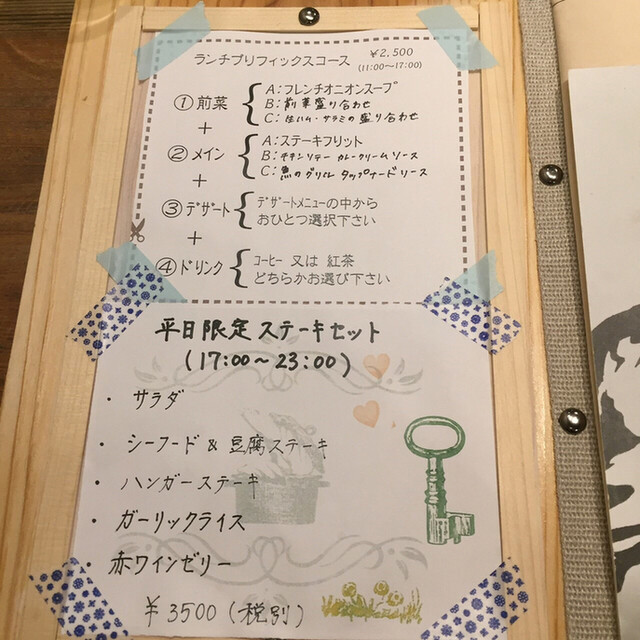 ランチプリフィックスコース ¥2,500
(11:00〜17:00)
①前菜
A:フレンチオニオンスープ
B:前菜盛り合わせ
C:生ハム・サラミの盛り合わせ
+
②メイン
A:ステーキフリット
B:チキンソテー カレークリームソース
C:魚のグリル タップナードソース
+
③デザート
デザートメニューの中から
おひとつ選択下さい
+
④ドリンク
コーヒー 又は 紅茶
どちらかお選び下さい
平日限定 ステーキセット
(17:00〜23:00)
・サラダ
・シーフード & 豆腐ステーキ
・ハンガーステーキ
・ガーリックライス
・赤ワインゼリー
¥3500(税別)